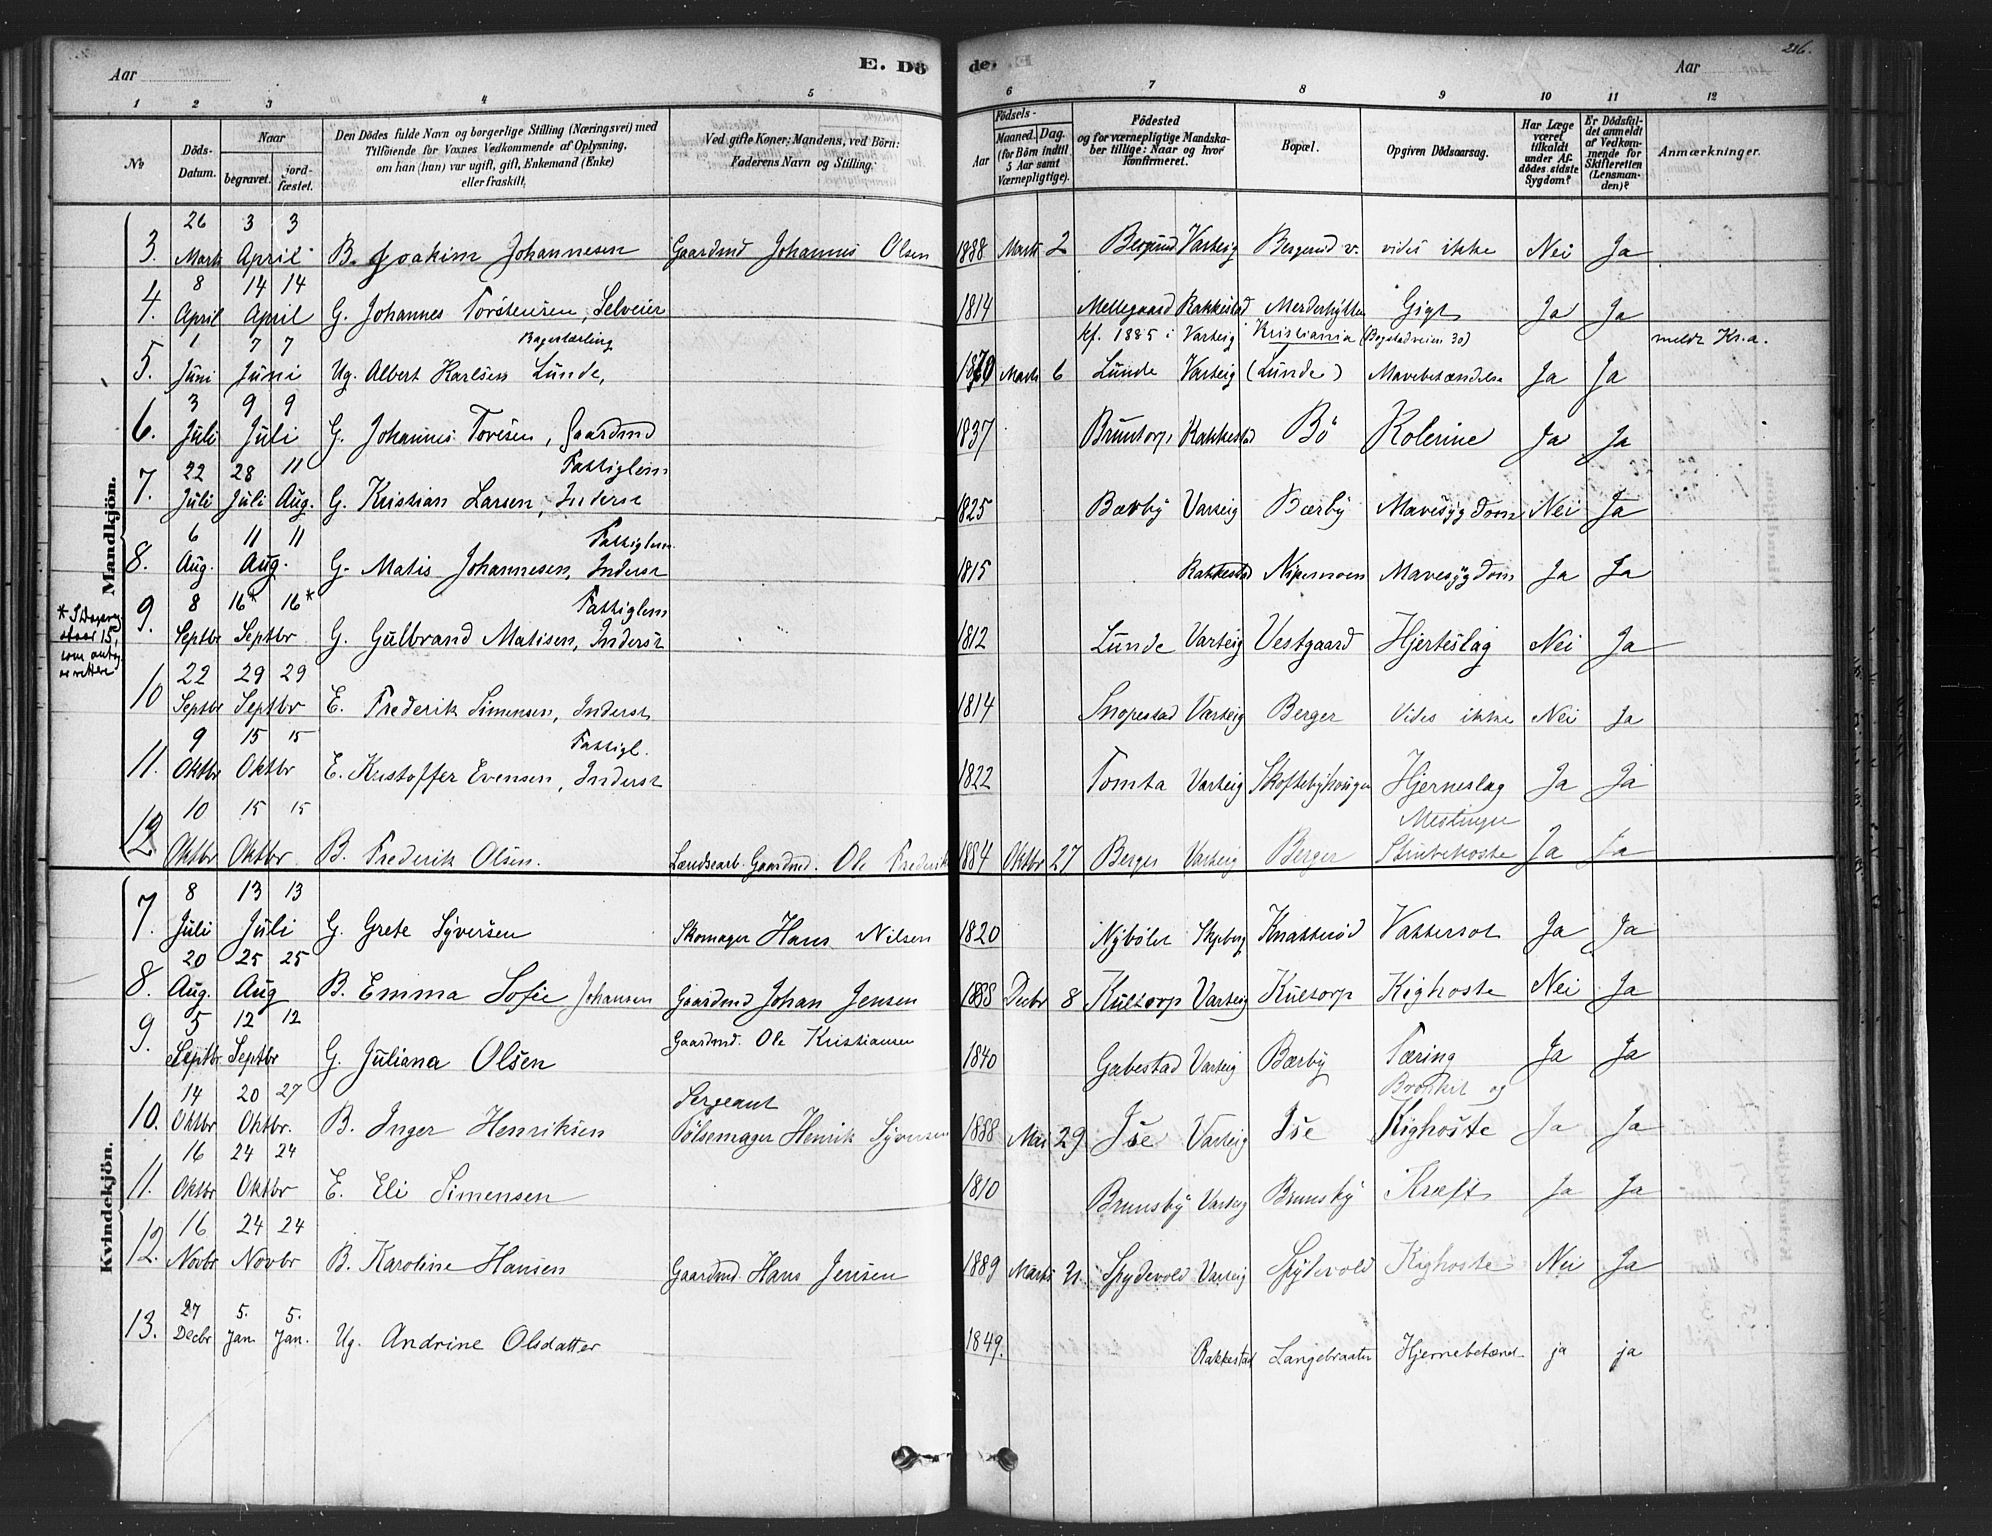 Aar E. Dö de. Aar 216.
1 2 3 4 5 6 7 8 9 10 11 12
No Döds-Datum. Naar begravet. jordfæstet. Den Dödes fulde Navn og borgerlige Stilling (Næringsvei) med Tilföiende for Voxnes Vedkommende af Oplysning, om han (hun) var ugift, gift, Enkemand (Enke) eller fraskilt. Ved gifte Koner: Mandens, ved Börn: Faderens Navn og Stilling. Aar Födsels- Maaned. Dag. (for Börn indtil 5 Aar samt Værnepligtige). Födested og for værnepligtige Mandskaber tillige: Naar og hvor Konfirmeret. Bopæl. Opgiven Dödsaarsag. Har Læge været tilkaldt under Afdödes sidste Sygdom? Er Dödsfaldet anmeldt af Vedkommende for Skifteretten (Lensmanden)? Anmærkninger.
Mandkjön.
3. 26 Marts 3 3 April B. Joakim Johannesen Gaardmd Johannes Olsen 1888 Marts 2 Bergerud Varteig Bergerud v. vides ikke Nei Ja
4. 8 April 14 14 April G. Johannes Torstensen, Selveier 1814 Mellegaard Rakkestad Merderhytten Gigt Ja Ja
5. 1 Juni 7 7 Juni Ug. Albert Karlsen Lunde, Bagerlærling 1870 Marts 6 kf. 1885 i Varteig Lunde Varteig Kristiania (Bogstadveien 30) (Lunde) Mavebetændelse Ja Ja meldt Kr.a.
6. 3 Juli 9 9 Juli G. Johannes Toresen, Gaardmd 1837 Bruntorp Rakkestad Bö Kolerine Ja Ja
7. 22 Juli 28 Juli 11 Aug. G. Kristian Larsen, Inderst Fattiglem 1825 Bærby Varteig Bærby Mavesygdom Nei Ja
8. 6 Aug. 11 11 Aug. G. Matis Johannesen, Inderst Fattiglem 1815 Rakkestad Nipemoen Mavesygdom Ja Ja
9. 8 Septbr 16* 16* Septbr G. Gulbrand Matisen, Inderst Fattiglem 1812 Lunde Varteig Vestgaard Hjerteslag Nei Ja
10 22 Septbr 29 29 Septbr E. Frederik Simensen, Inderst 1814 Snopestad Varteig Berger Vides ikke Nei Ja
11. 9 Oktbr 15 15 Oktbr E. Kristoffer Evensen, Inderst Fattigl. 1822 Tomta Varteig Skoftebyhougen Hjerneslag Ja Ja
12. 10 Oktbr 15 15 Oktbr B. Frederik Olsen. Gaardmd. Ole Frederik 1884 Oktbr 27 Berger Varteig Berger Strubehoste Ja Ja
Kvindekjön.
7. 8 Juli 13 13 Juli G. Grete Syversen Skomager Hans Nilsen 1820 Nyböle Knatteröd Vattersot Ja Ja
8. 20 Aug. 25 25 Aug B. Emma Sofie Johansen Gaardmd Johan Jensen 1888 Decbr 8 Kultorp Varteig Kultorp Kighoste Nei Ja
9. 5 Septbr 12 12 Septbr G. Juliana Olsen Gaardmd. Ole Kristiansen 1840 Gabestad Varteig Bærby Tæring Ja Ja
10. 14 Oktbr 20 27 Oktbr. B. Inger Henriksen Sergeant Pölsemager Henrik Syversen 1888 Mai 29 Ise Varteig Ise Bronkit og Kighoste Ja Ja
11. 16 Oktbr 24 24 Oktbr E. Eli Simensen 1810 Brunsby Varteig Brunsby Kræft Ja Ja
12. 16 Novbr 24 24 Novbr B. Karoline Hansen Gaardmd. Hans Jensen 1889 Marts 21. Spydevold Varteig Spydevold Kighoste Nei Ja
13. 27 Decbr 5. Jan. 5. Jan. Ug. Andrine Olsdatter 1849. Rakkestad Langebraaten Hjernebetænd. ja ja